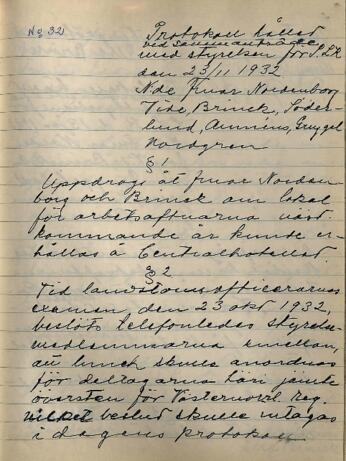 No 32
Protokoll hållet
ved sammanträde
med styrelsen för S.L.R
den 23/11 1932
N.de fruar Nordenborg
Tide, Brinck, Söder-
lund, Ammens, Gruggel
Nordgren
§ 1
Uppdrogs åt fruar Norden-
borg och Brinck om lokal
för arbetsaftnarna näst
kommande år kunde er-
hållas å Centralhotellet.
§ 2
Tid landstormsofficerarnas
examen den 23 okt 1932,
beslöts telefonledes styrelse-
medlemmarna emellan,
att lunch skulle anordnas
för deltagarna häri jämte
översten för Västernorrl. reg.
vilket beslut skulle intagas
i dagens protokoll